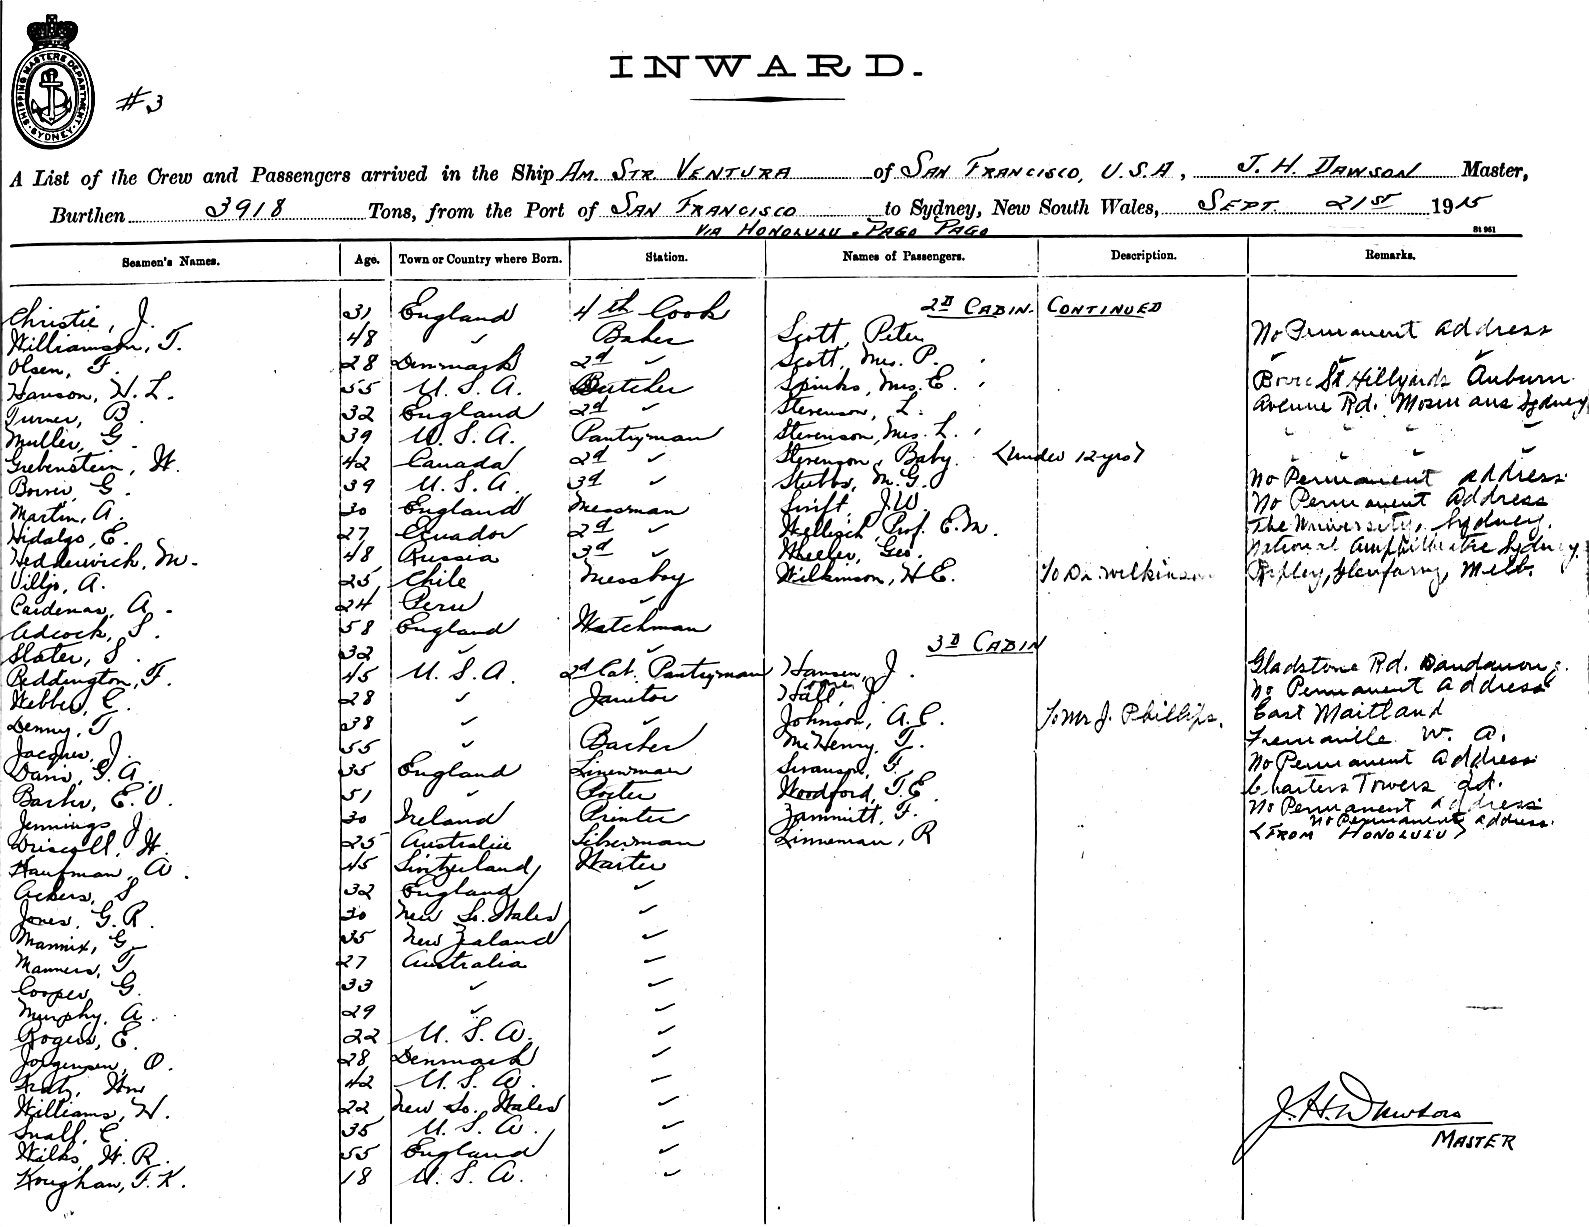 SHIPPING MASTERS DEPARTMENT SYDNEY
#3
INWARD.
A List of the Crew and Passengers arrived in the Ship AM. STR. VENTURA of SAN FRANCISCO, U.S.A, J. H. DAWSON Master,
Burthen 3918 Tons, from the Port of SAN FRANCISCO to Sydney, New South Wales, SEPT. 21ST 1915
VIA HONOLULU - PAGO PAGO
St 961
Seamen's Names. Age. Town or Country where Born. Station. Names of Passengers. Description. Remarks.
2D CABIN. CONTINUED
Christie, J. 31 England 4th Cook
Williamson, T. 48 " Baker Scott, Peter No Permanent address
Olsen, F. 28 Denmark 2d " Scott, Mrs. P. " " "
Hanson, H. L. 55 U. S. A. Butcher Spinks, Mrs. E. St Hillyards Auburn
Turner, B. 32 England 2d " Stevenson, L. Avenue Rd. Mosmans Sydney
Muller, G. 39 U. S. A. Pantryman Stevenson, Mrs. L. " " " "
Grebenstein, W. 42 Canada 2d " Stevenson, Baby. (under 12 yrs) " " " "
G. 39 U. S. A. 3d " Stubbs, M. G. No Permanent address
Martin, A. 30 England Messman Swift, J. W. No Permanent Address
Hidalgo, E. 27 Ecuador 2d " Wellisch, Prof. E. M. The University, Sydney.
Hedderwich, M. 48 Russia 3d " Wheeler, Geo. National Amphitheatre Sydney.
A. 25 Chile Messboy Wilkinson, H. E. To Dr. Wilkinson Ripley, Glenfarry, Melb.
Cardenas, A. 24 Peru "
Adcock, S. 58 England Watchman
3D CABIN
Slater, S. 32 " "
Peddington, F. 45 U. S. A. 2d Cab. Pantryman Hansen, J. Gladstone Rd. Dandanong.
Webber, C. 28 " Janitor Hall, J. No Permanent address
Denny, T 38 " " Johnson, A. E. To Mr J. Phillips. East Maitland
Jacques, J. 55 " Barber McHenry, T. W. A.
Davis, G. A. 35 England Linenman Swanson, F. No Permanent address
Barker, E. O. 51 " Porter Woodford, T. E. Charters Towers
Jennings, J 30 Ireland Printer Zammitt, F. No Permanent address
No Permanent address.
Driscoll, W. 25 Australia Linneman, R (FROM HONOLULU)
Kaufman, A. 45 Switzerland Waiter
Ackers, S 32 England "
Jones, G. R. 30 New So. Wales "
Mannix, G 35 New Zealand "
Manners, T 27 Australia "
Cooper, G. 33 " "
Murphy, A. 29 " "
Rogers, E. 22 U. S. A. "
Jorgensen, O. 28 Denmark "
Wm 42 U. S. A. "
Williams, W. 22 New So. Wales "
Snall, C. 35 U. S. A. "
Wilks, W. R. 55 England "
Koughan, T. K. 18 U. S. A. "
J. H. Dawson
MASTER